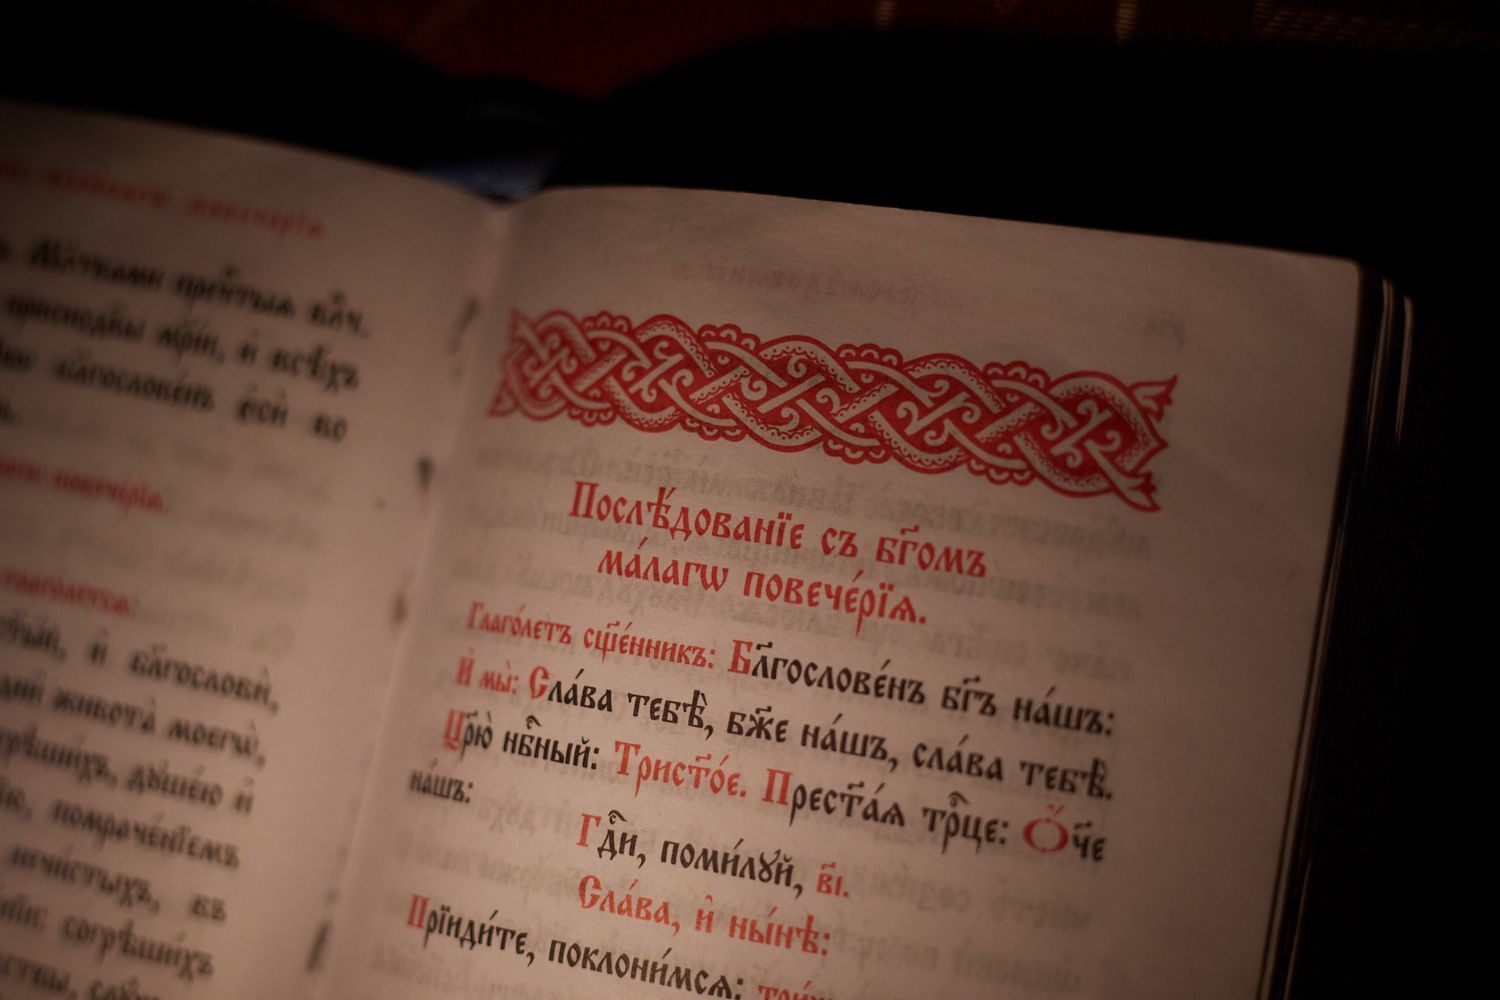 повече́рїѧ
пречⷭ҇тыѧ влⷣч
приснодв҃ы мр҃і́и, и҆ всѣ́хъ
бл҃гослове́нъ є҆сѝ во
повече́рїѧ.
глаго́летъ:
и҆ бл҃гословѝ,
живота̀ моегѡ̀,
дꙋше́ю и҆
помраче́нїемъ
нечи́стыхъ, въ
согрѣши́хъ
Послѣ́дованїе съ бг҃омъ
ма́лагѡ повече́рїѧ.
Глаго́летъ сщ҃е́нникъ: Бл҃гослове́нъ бг҃ъ на́шъ:
И҆ мы̀: Сла́ва тебѣ̀, бж҃е на́шъ, сла́ва тебѣ̀.
Цр҃ю̀ нбⷭ҇ный: Трист҃о́е. Прест҃а́ѧ трⷪ҇це: Ѻ҆́ч҃е
на́шъ:
Гдⷭ҇и, поми́лꙋй, в҃і.
Сла́ва, и҆ ны́нѣ:
Прїиди́те, поклони́мсѧ: